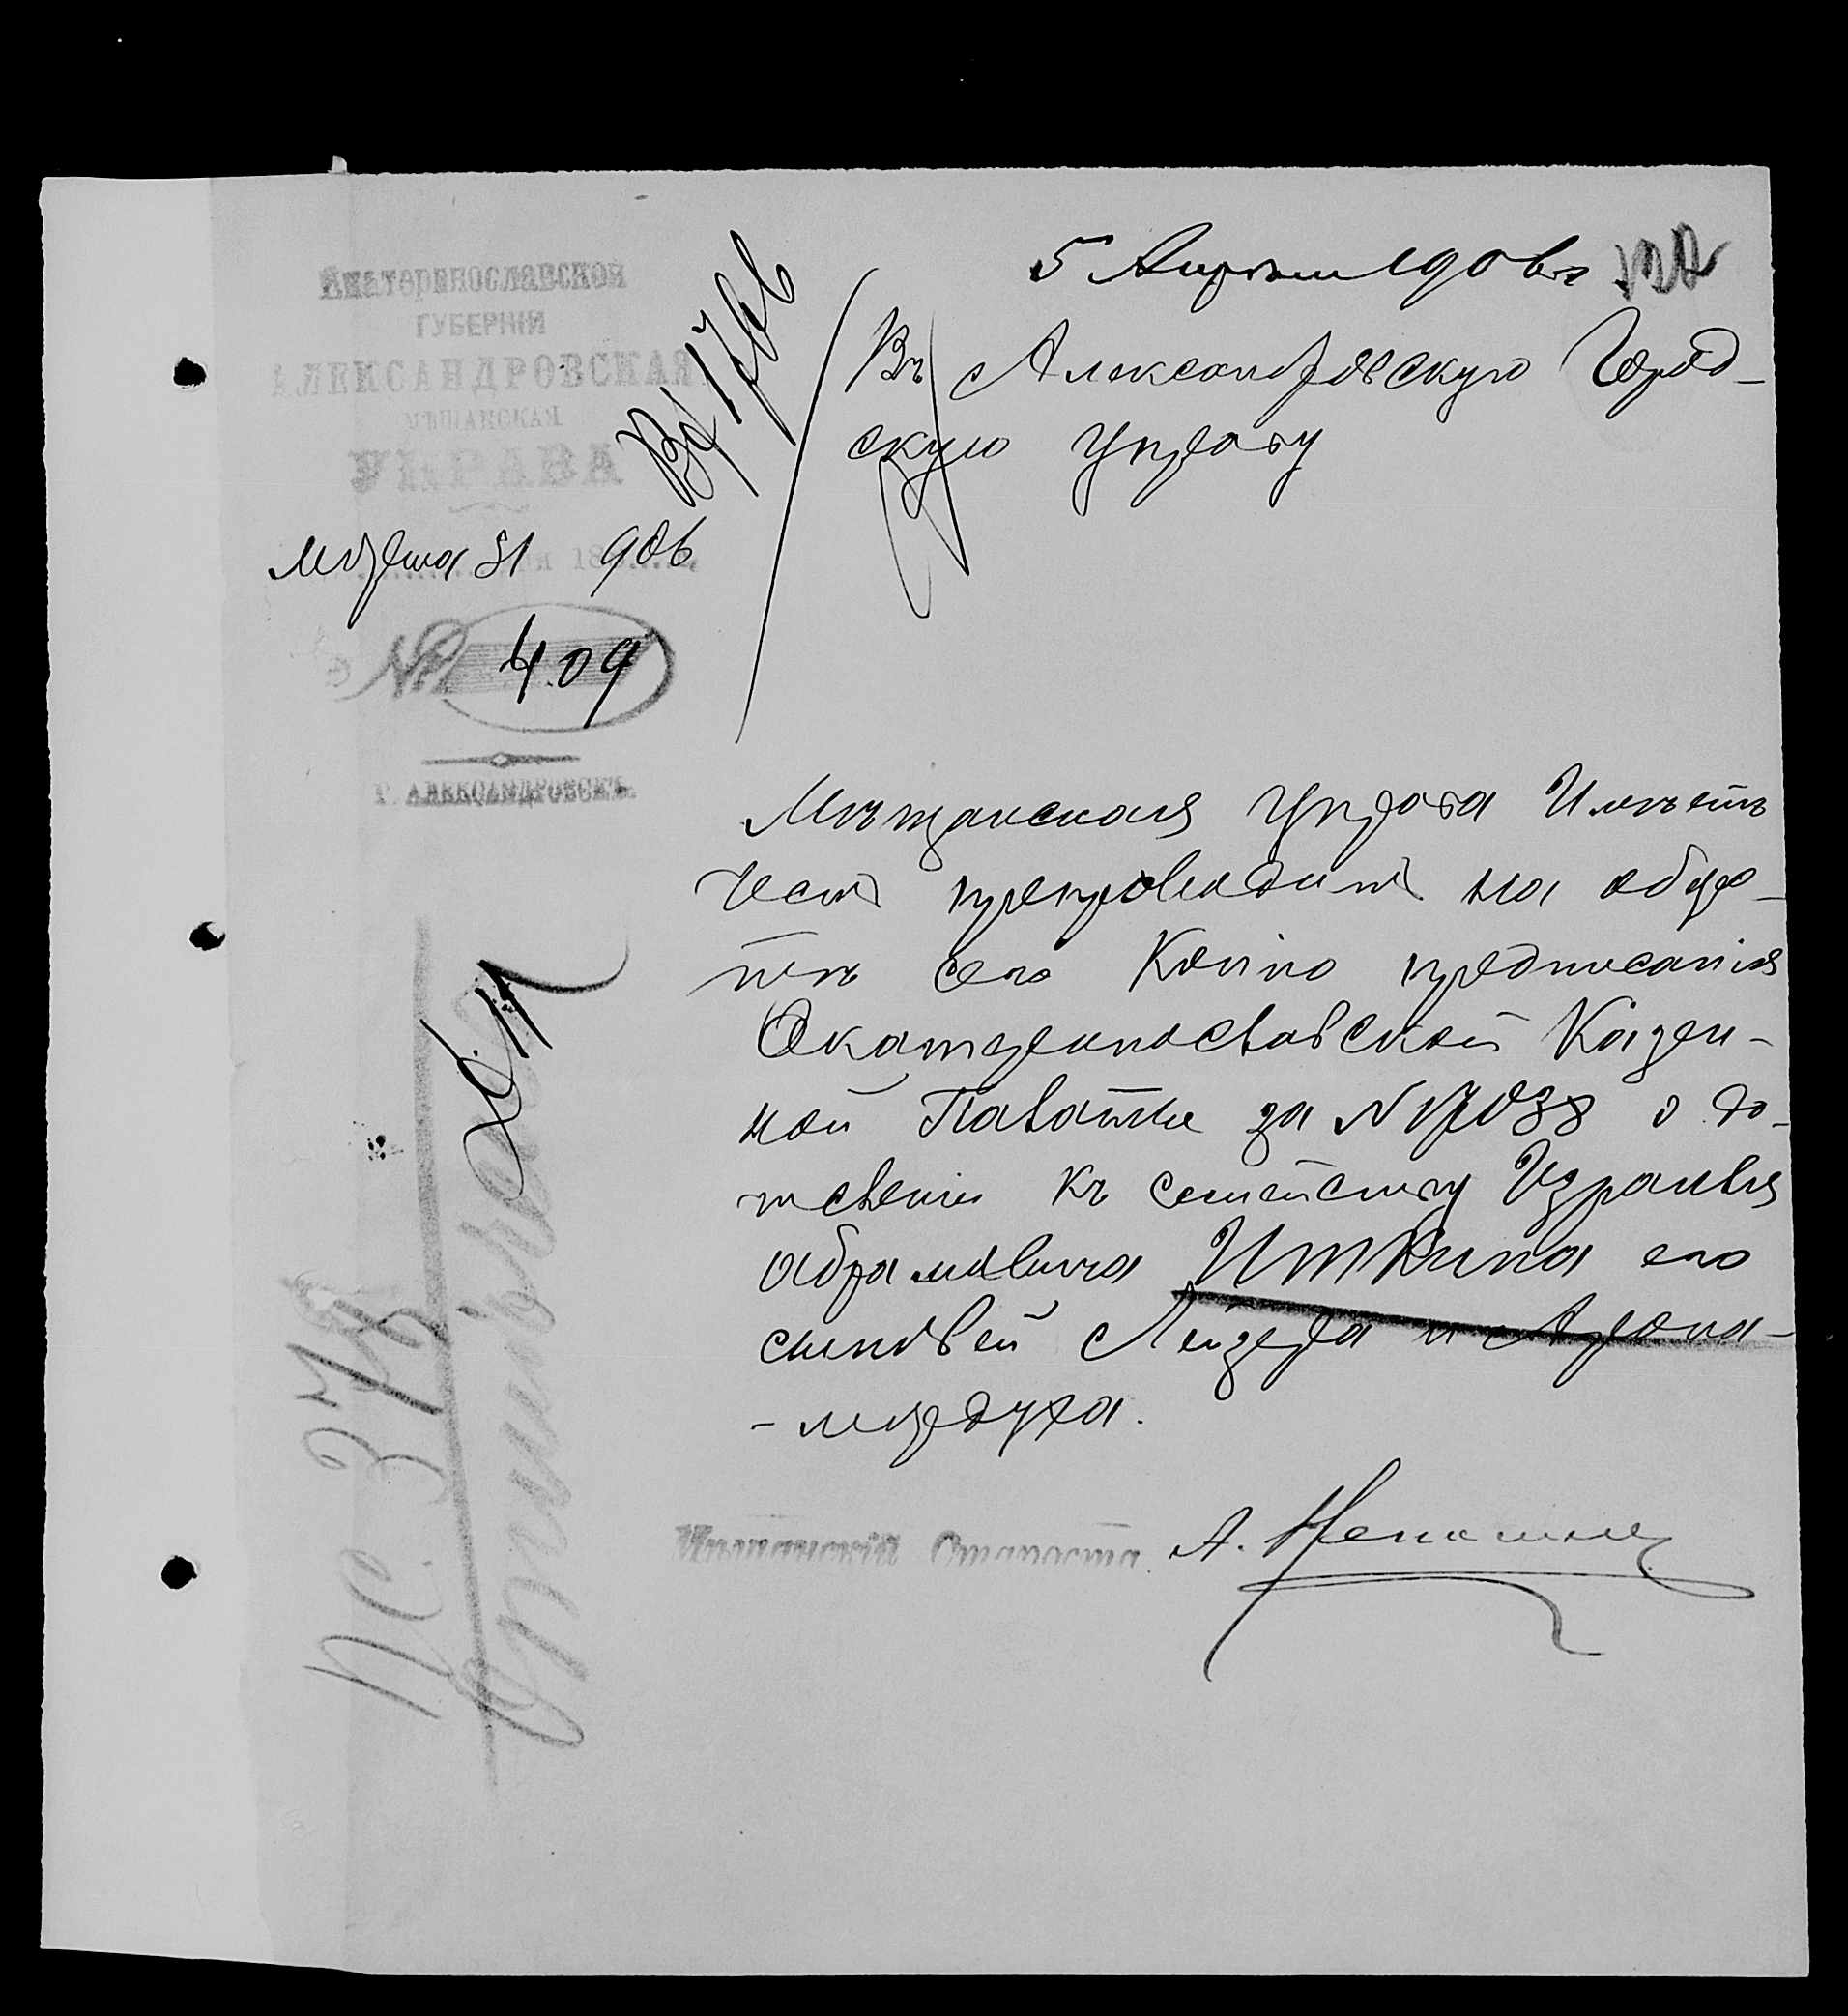 5 Апрѣля 1906 г.
Екатеринославской
ГУБЕРНІИ
АЛЕКСАНДРОВСКАЯ
МѢЩАНСКАЯ
УПРАВА
Марта 31 906
№ 409
Г. АЛЕКСАНДРОВСКЪ.
Въ Александровскую Город-
скую Управу
Мѣщанская Управа Имѣетъ
честь препроводить на обро-
тѣ сего Копію предписанія
Екатеринославской Казен-
ной Палаты за №17038 о до-
числении къ семейству Израиля
Абрамовича Иткина его
сыновей Лейзера и Арона-
-мордуха.
Мѣщанскій Староста А.
ПС. 378